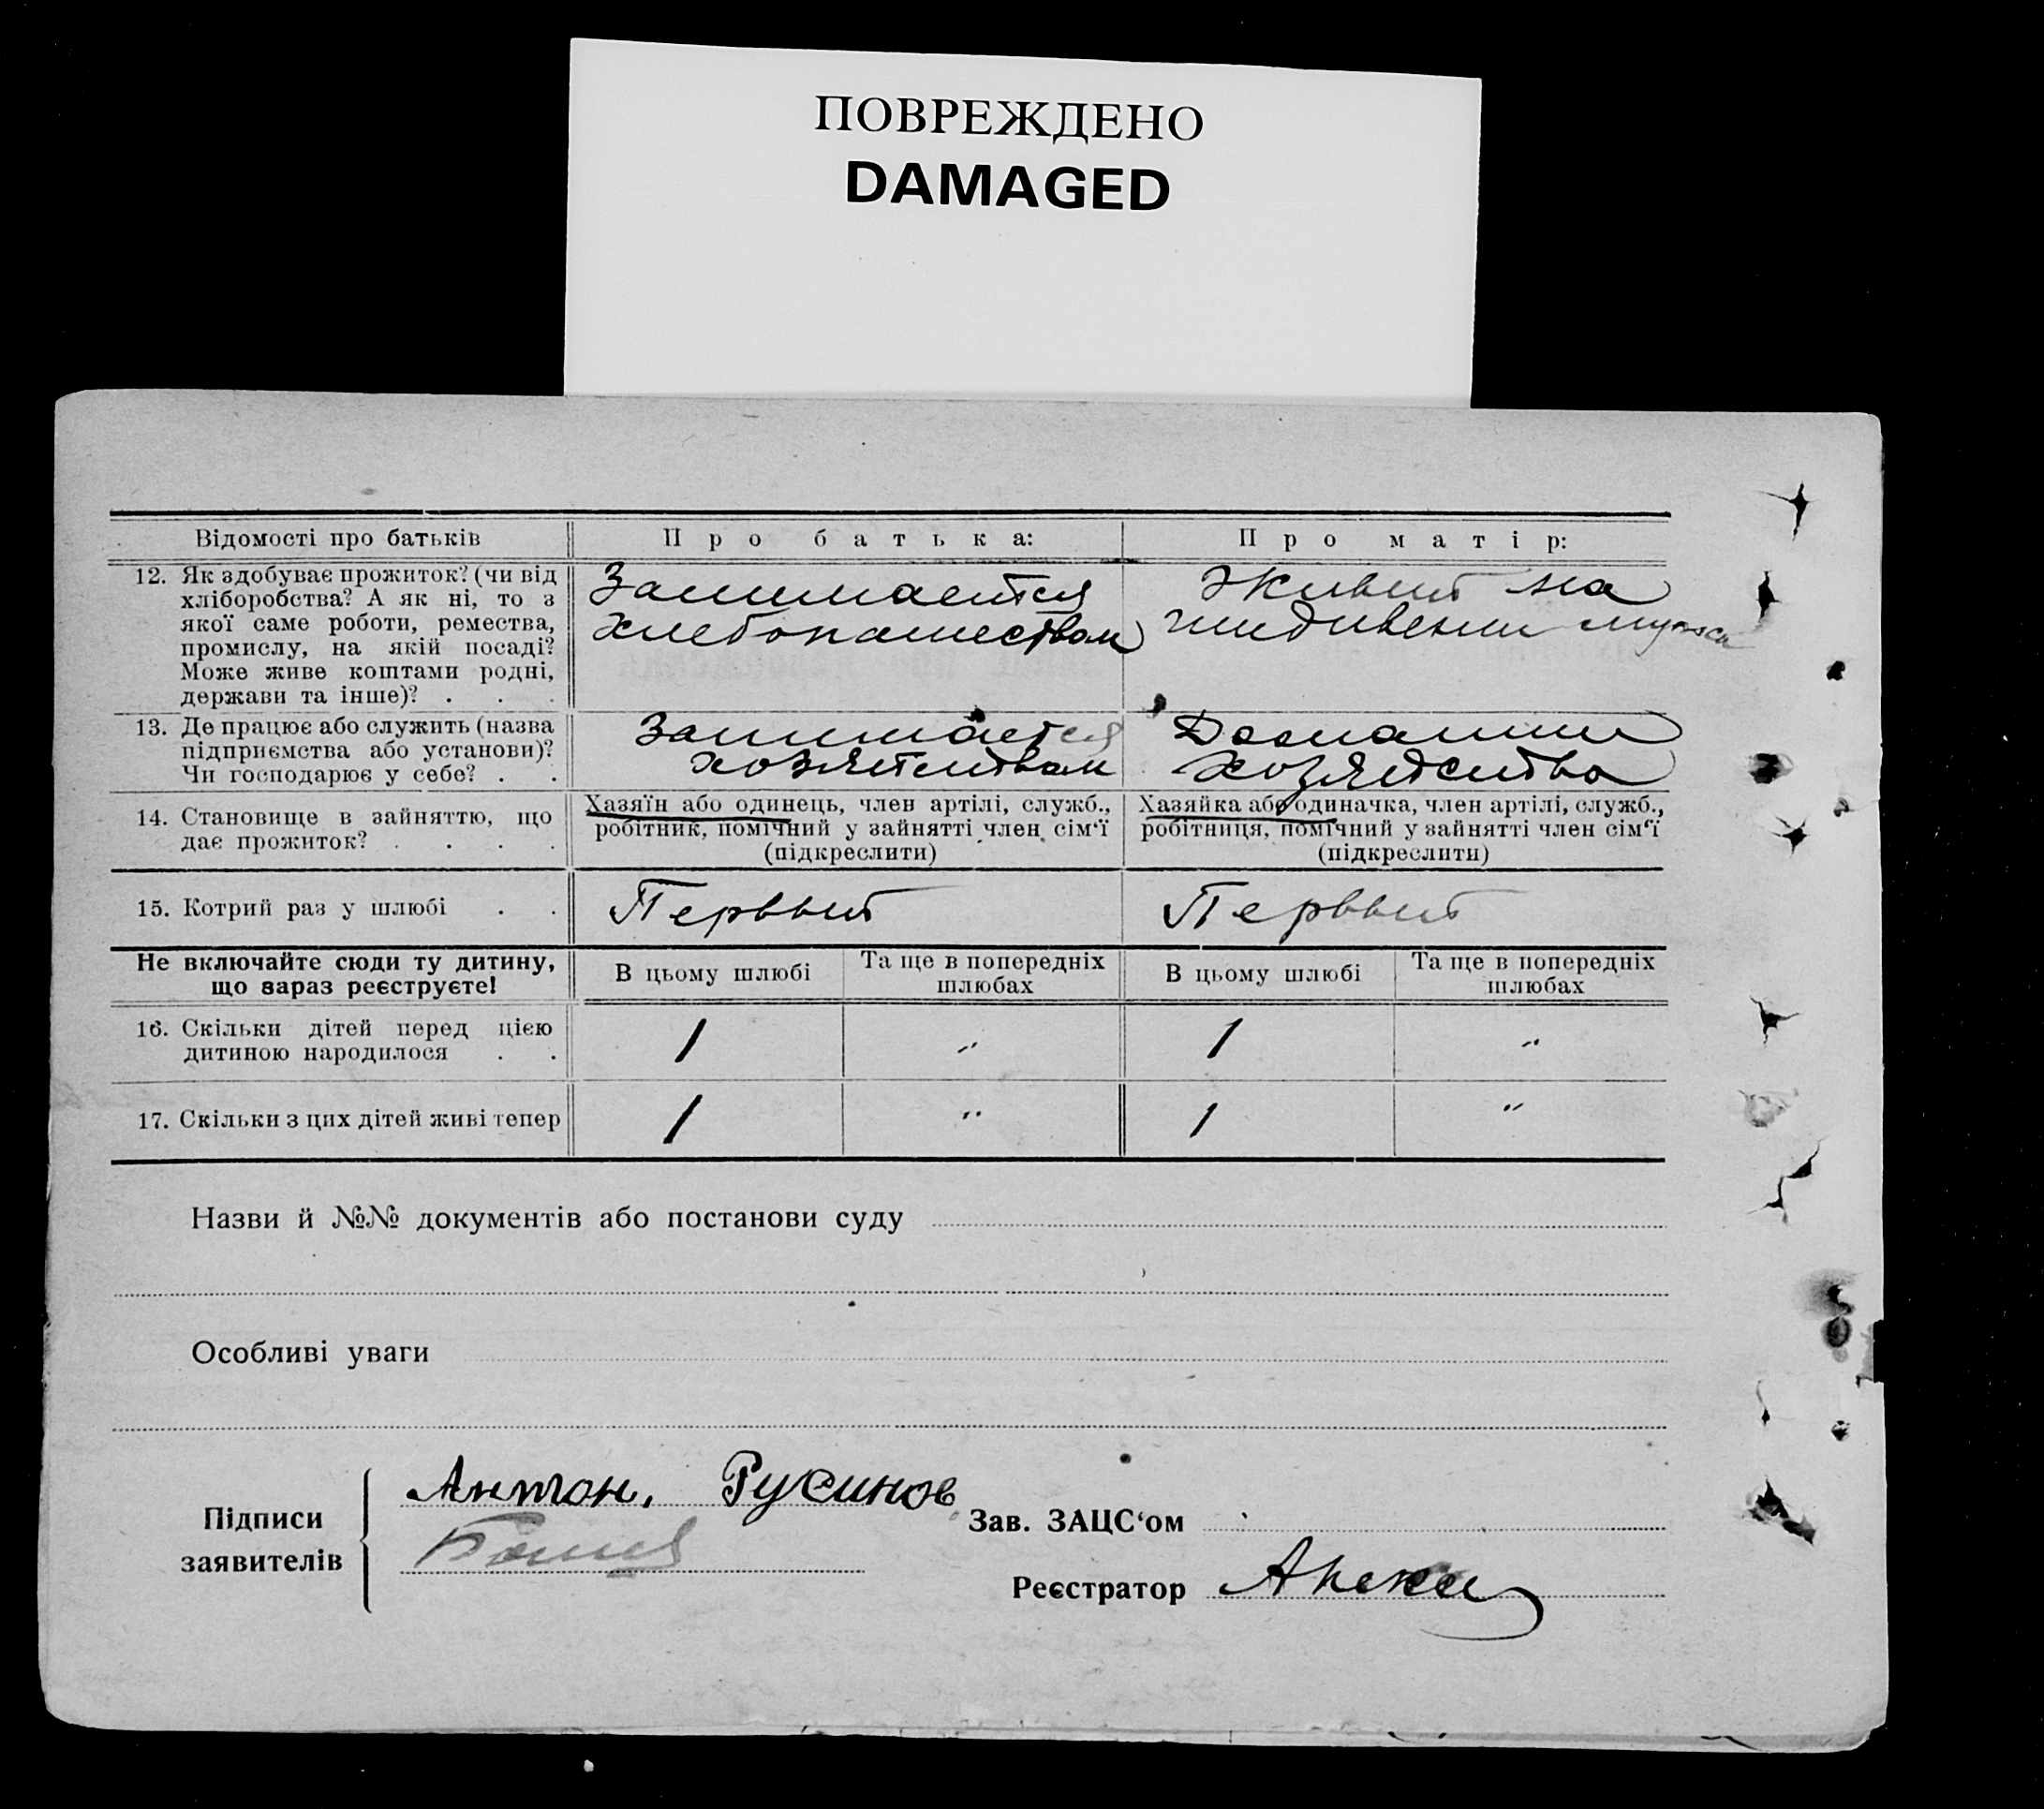 ПОВРЕЖДЕНО
DAMAGED
Відомості про батьків
Про батька:
Про матір:
12. Як здобуває прожиток? (чи від
хліборобства? А як ні, то з
якої саме роботи, ремества,
промислу, на якій посаді?
Може живе коштами родні,
держави та інше)? . . .
Занимается
хлебопашеством
Живет на
иждивении мужа
13. Де працює або служить (назва
підприємства або установи)?
Чи господарює у себе? . .
Занимается
хозяйством
Домашни
хозяйство
14. Становище в зайняттю, що
дає прожиток? . . . .
Хазяїн або одинець, член артілі, служб.,
робітник, помічний у зайнятті член сім‘ї
(підкреслити)
Хазяйка або одиначка, член артілі, служб.,
робітниця, помічний у зайнятті член сім‘ї
(підкреслити)
15. Котрий раз у шлюбі . .
Первый
Первый
Не включайте сюди ту дитину,
що зараз реєструєте!
В цьому шлюбі
Та ще в попередніх
шлюбах
В цьому шлюбі
Та ще в попередніх
шлюбах
16. Скільки дітей перед цією
дитиною народилося . .
1 " 1 "
17. Скільки з цих дітей живі тепер
1 " 1 "
Назви й №№ документів або постанови суду
Особливі уваги
Підписи
заявителів
Антон. Русинов
Зав. ЗАЦС‘ом
Реєстратор